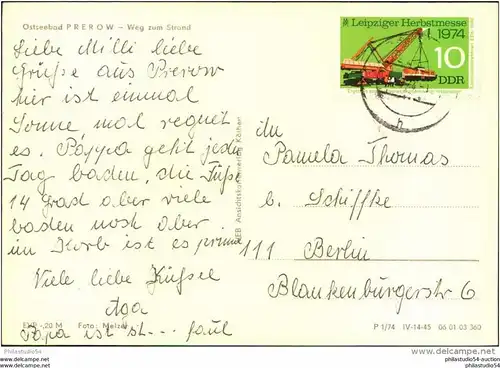 Ostseebad PREROW – Weg zum Strand
Liebe Milli liebe
Grüße aus Prerow
hier ist einmal
Sonne, mal regnet
es. Pappa geht jeden
Tag baden, die Füße
14 grad aber viele
baden noch aber
im Korb ist es prima
Viele liebe Küssel
Aga
Papa ist st... faul
EVP -,20 M Foto: Melzer
REB Ansichtskartenverlag Köthen
Leipziger Herbstmesse
1974
10
DDR
Pamela Thomas
b. Schiffke
111 Berlin
Blankenburgerstr 6
P 1/74 IV-14-45 06 01 03 360
Philastudio54-auction
philastudio54
Philastudio54
delcampe.net